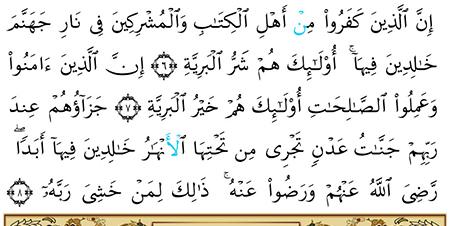 إِنَّ ٱلَّذِينَ كَفَرُوا۟ مِنْ أَهْلِ ٱلْكِتَٰبِ وَٱلْمُشْرِكِينَ فِى نَارِ جَهَنَّمَ
خَٰلِدِينَ فِيهَآ ۚ أُو۟لَٰٓئِكَ هُمْ شَرُّ ٱلْبَرِيَّةِ ﴿٦﴾ إِنَّ ٱلَّذِينَ ءَامَنُوا۟
وَعَمِلُوا۟ ٱلصَّٰلِحَٰتِ أُو۟لَٰٓئِكَ هُمْ خَيْرُ ٱلْبَرِيَّةِ ﴿٧﴾ جَزَآؤُهُمْ عِندَ
رَبِّهِمْ جَنَّٰتُ عَدْنٍ تَجْرِى مِن تَحْتِهَا ٱلْأَنْهَٰرُ خَٰلِدِينَ فِيهَآ أَبَدًا ۖ
رَّضِىَ ٱللَّهُ عَنْهُمْ وَرَضُوا۟ عَنْهُ ۚ ذَٰلِكَ لِمَنْ خَشِىَ رَبَّهُۥ ﴿٨﴾